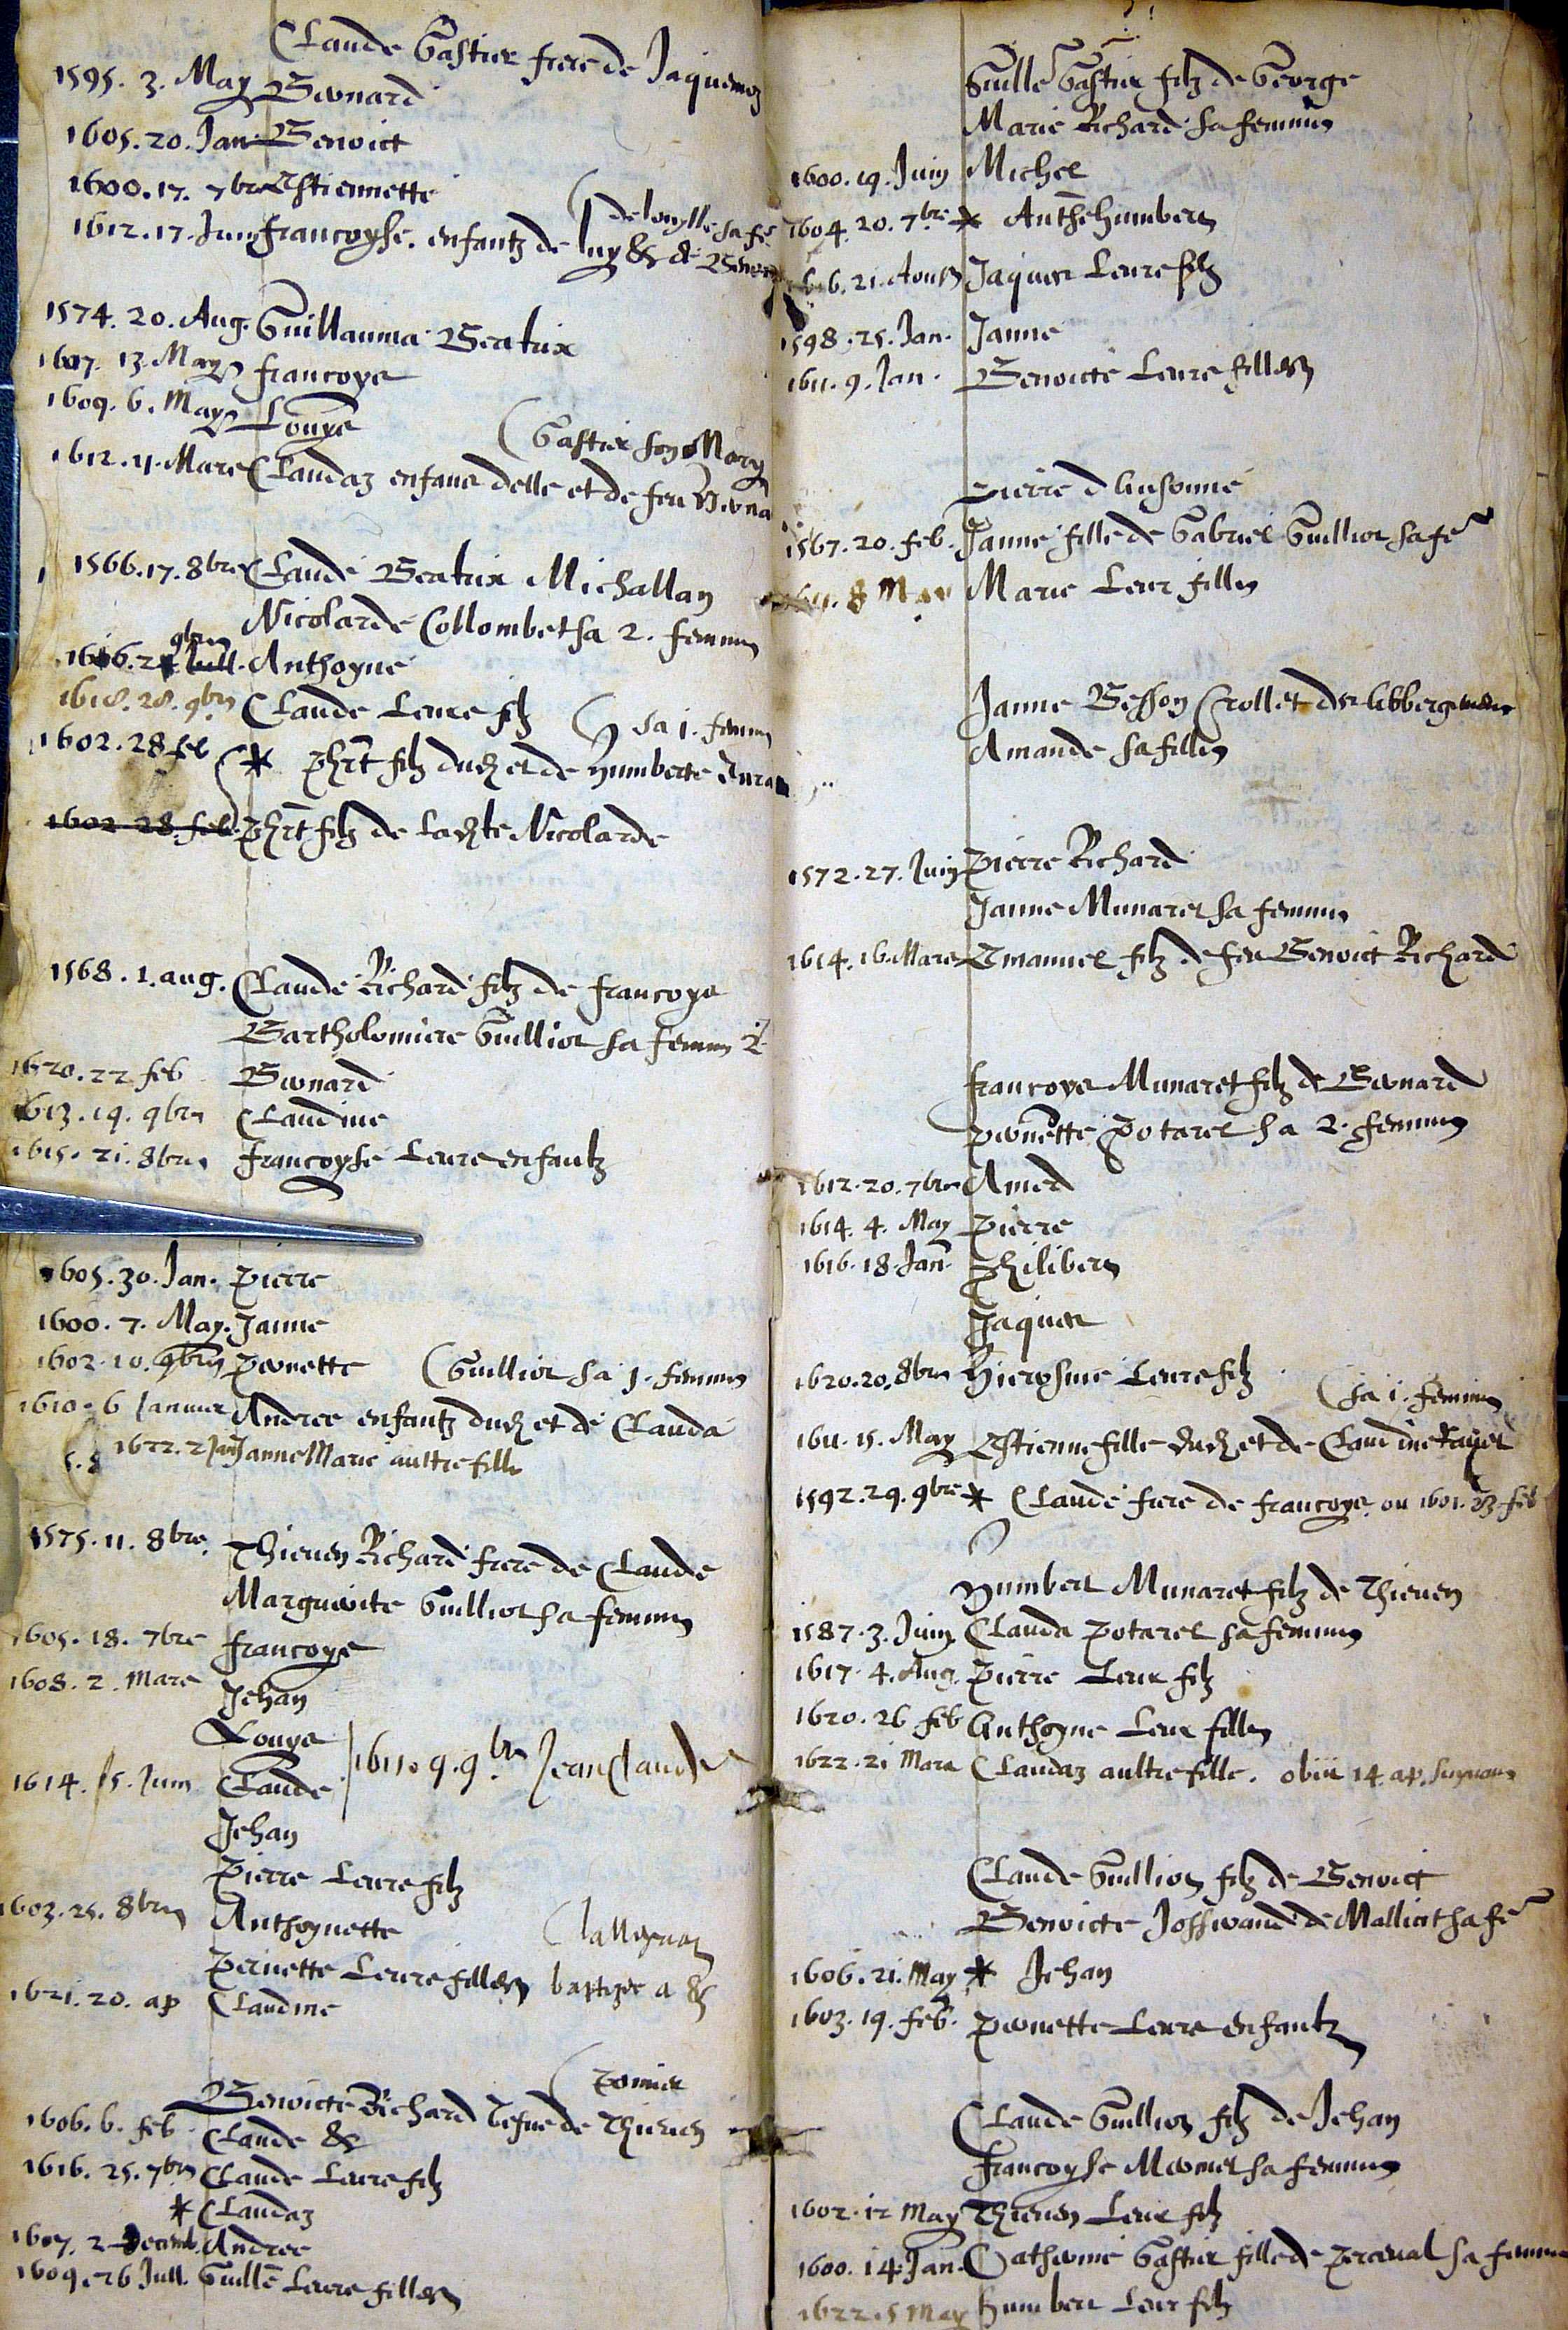 Claude Gastier frere de Jaquemoz
1595. 3. May Bernard
1605. 20. Jan Benoict
1600. 17. 7bre Estiennette
(delouylle sa fe
1612. 17. Juin francoyse. enfantz de luy & de
1574. 20. Aug. Guillauma Beatrix
1607. 13. May francoys
1609. 6. May Louys
(Gastier son Mary
1612. 11. Mars Claudaz enfans delle et de feu Berna
1566. 17. 8bre Claude Beatrix Michallan
Nicolarde Collombet sa 2. femme
9bre
1606. 24 Jull. Anthoyne
1618. 28. 9bre Claude leurs filz
(sa 1. femme
1602. 28 feb * Phrt filz dudt et de Humberte
1602 28. feb. Phrt filz de ladte Nicolarde
1568. 1. aug. Claude Richard filz de francoys
Bartholomiere Guilliot sa femme 2
1620. 22 feb Bernard
1613. 19. 9bre Claudine
1615. 21. 8bre francoyse leurs enfantz
1605. 30. Jan. Pierre
1600. 7. May. Janne
1602. 10. 9bre Pernette (Guilliot sa 1. femme
1610. 6 Januier Andree enfantz dudt et de Clauda
1622. 2 Jan Janne Marie aultre fille
1575. 11. 8bre. Thieuen Richard frere de Claude
Marguerite Guilliot sa femme
1605. 18. 7bre francoys
1608. 2. Mars Jehan
Louys
1611. 9. 9bre Jean Claude
1614. 15. Juin Claude
Jehan
Pierre leurs filz
1603. 25. 8bre Anthoynette
Pernette leurs filles baptizee a &
1621. 20. ap Claudine
(Pomier
Benoicte Richard vefue de Thieuen
1606. 6. feb. Claude &
1616. 25. 7bre Claude leurs filz
* Claudaz
1607. 2 Decemb. Andree
1609. 26 Jull. Guille leurs filles
Guille Gastier filz de George
Marie Richard sa femme
1600. 19. Juin Michel
1604. 20. 7bre * Anthe Humbert
6. 21. Aoust Jaques leurs filz
1598. 25. Jan. Janne
1611. 9. Jan. Benoicte leurs filles
Pierre d Ansonne
1567. 20. feb. Janne fille de Gabriel Guilliot sa fe
1611. 8 May Marie leur fille
Janne Besson Crollet des Abbergemens
Amande sa fille
1572. 27. Juin Pierre Richard
Janne Munaret sa femme
1614. 16. Mars Emanuel filz de feu Benoict Richard
francoys Munaret filz de Bernard
Pernette Potarel sa 2. femme
1612. 20. 7bre Amed
1614. 4. May Pierre
1616. 18. Jan. Philibert
Jaques
1620. 20. 8bre Hierosme leurs filz
(sa 1. femme
1611. 15. May Estienne fille dudt et de Claudine
1592. 29. 9bre * Claude frere de francoys. ou 1601. 23. feb
Humbert Munaret filz de Thieuen
1587. 3. Juin Clauda Potarel sa femme
1617. 4. Aug. Pierre leur filz
1620. 26 feb Anthoyne leur fille
1622. 21 Mars Claudaz aultre fille. obiit 14. ap. suyuant
Claude Guillion filz de Benoict
Benoicte Josserand de Malliat sa fe
1606. 21. May * Jehan
1603. 19. feb. Pernette leurs enfantz
Claude Guillion filz de Jehan
francoyse Mermet sa femme
1602. 12 May Thieuen leur filz
1600. 14 Jan. Catherine Gastier fille de Perceual sa femme
1622. 5 May Humbert leur filz